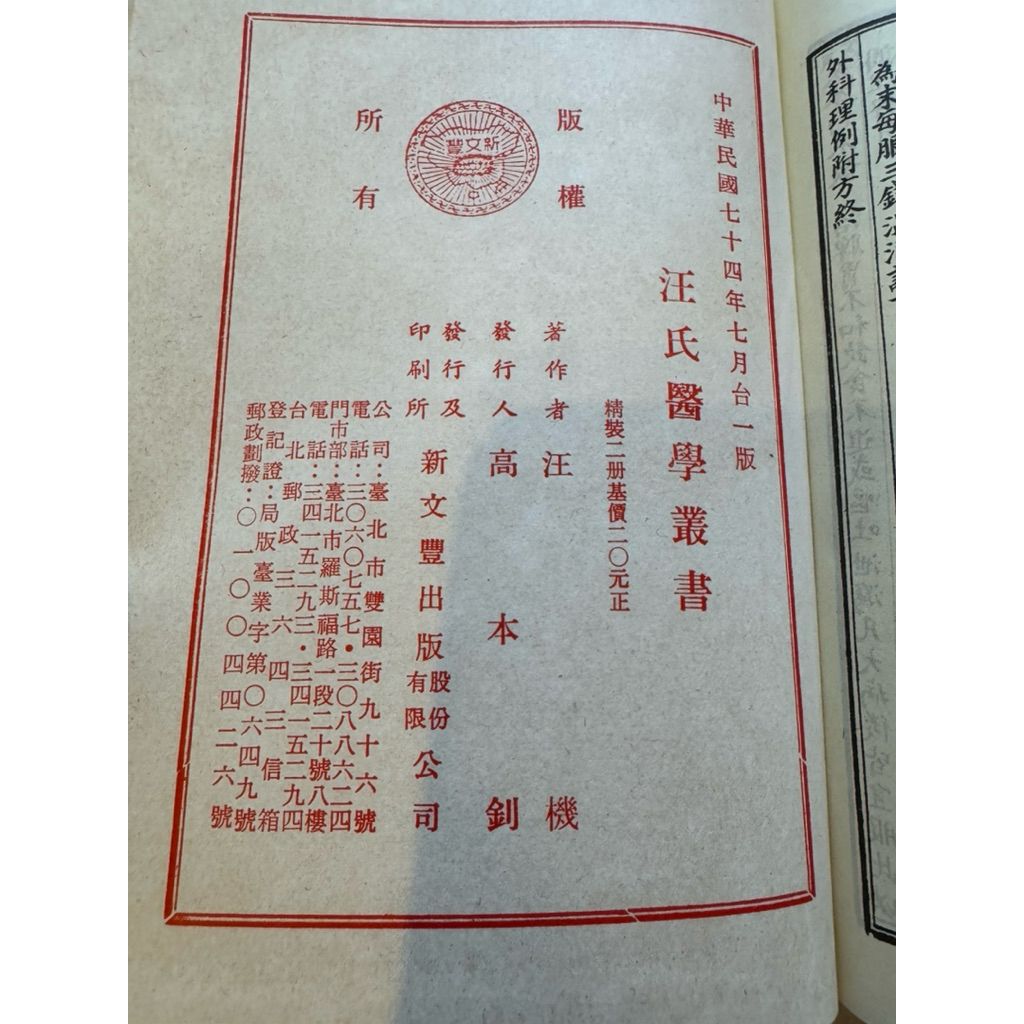 為末每服三錢
外科理例附方終
中華民國七十四年七月台一版
汪氏醫學叢書
精裝二册基價二〇元正
版權
新文豐
所有
著作者 汪機
發行人 高本釗
發行及印刷所 新文豐出版股份有限公司
公司：臺北市雙園街九十六號
電話：三〇六〇七五七•三〇八八六二四
門市部：臺北市羅斯福路一段二十號八樓
電話：三四一五二九三•三四一五二九四
台北郵政三六四三信箱
登記證：局版臺業字第〇六四九號
郵政劃撥：〇一〇〇四四二六號